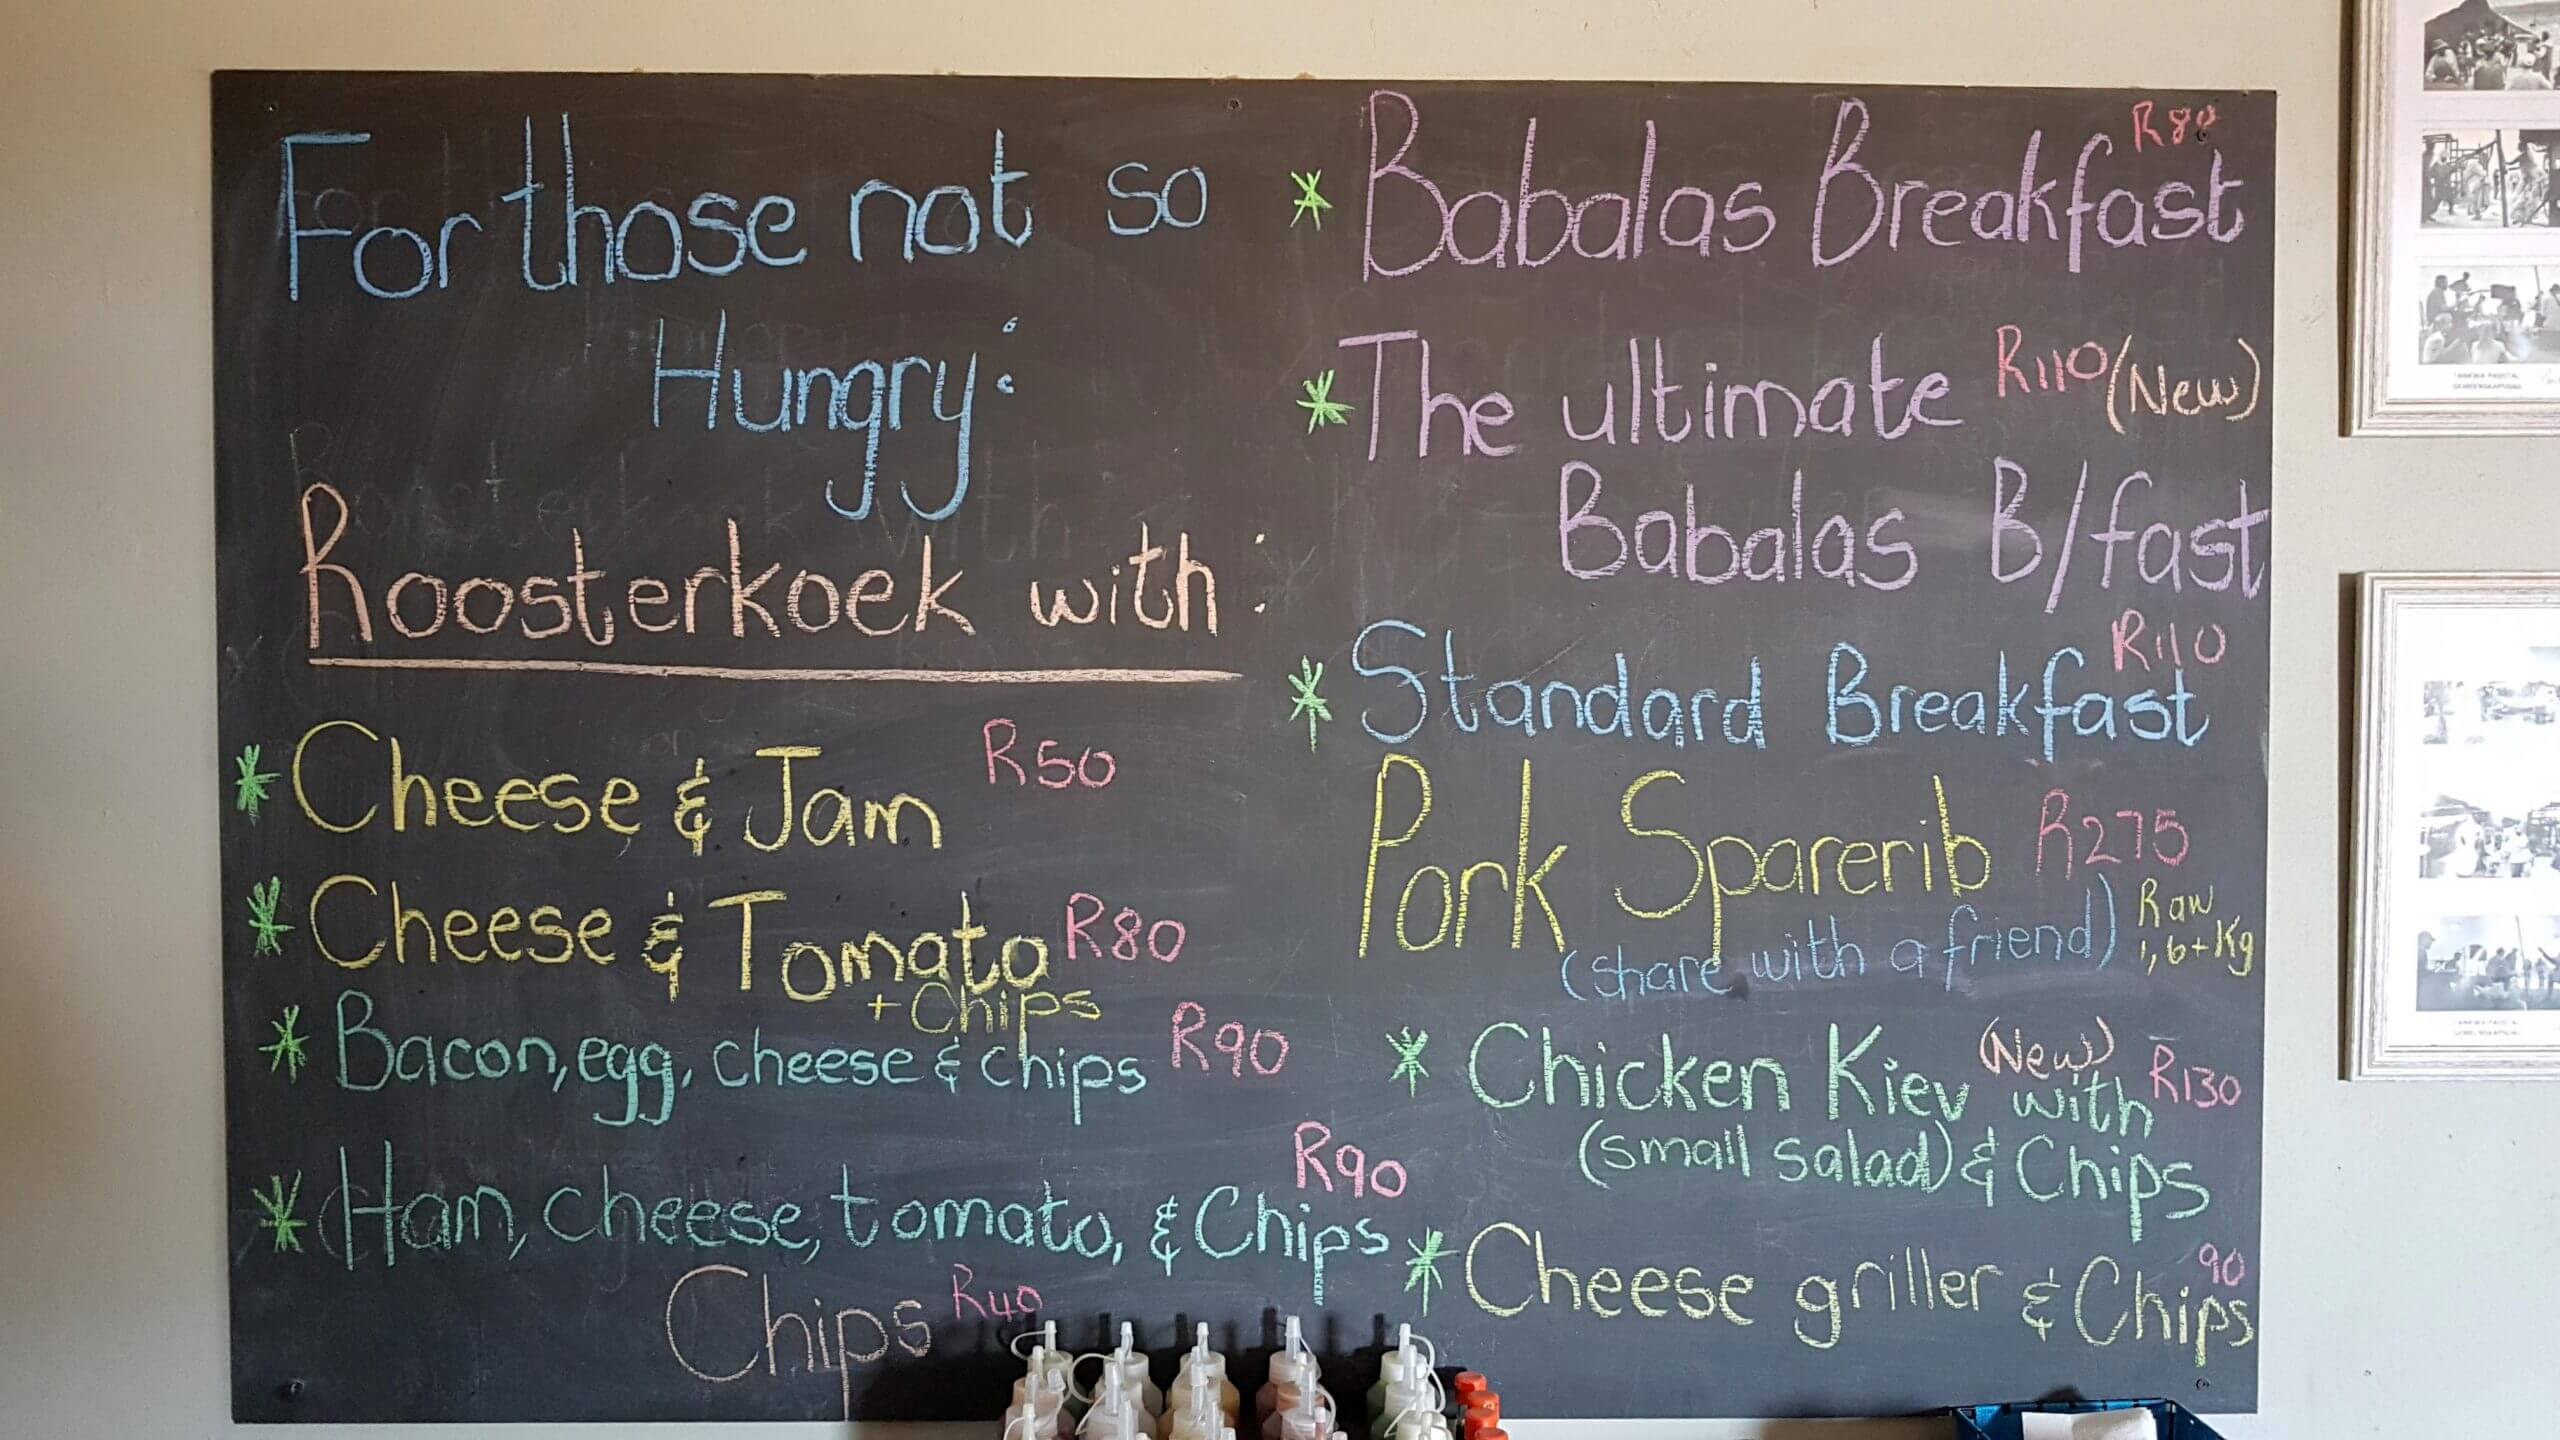 For those not so
Hungry:
Roosterkoek with:
* Cheese & Jam R50
* Cheese & Tomato R80
+ Chips
* Bacon, egg, cheese & chips R90
* Ham, cheese, tomato, & Chips R90
Chips R40
* Babalas Breakfast R80
* The ultimate R110 (New)
Babalas B/fast
* Standard Breakfast R110
Pork Sparerib R275
(share with a friend) Raw
1,6+Kg
* Chicken Kiev (New) with R130
(small salad) & Chips
* Cheese griller & Chips 90